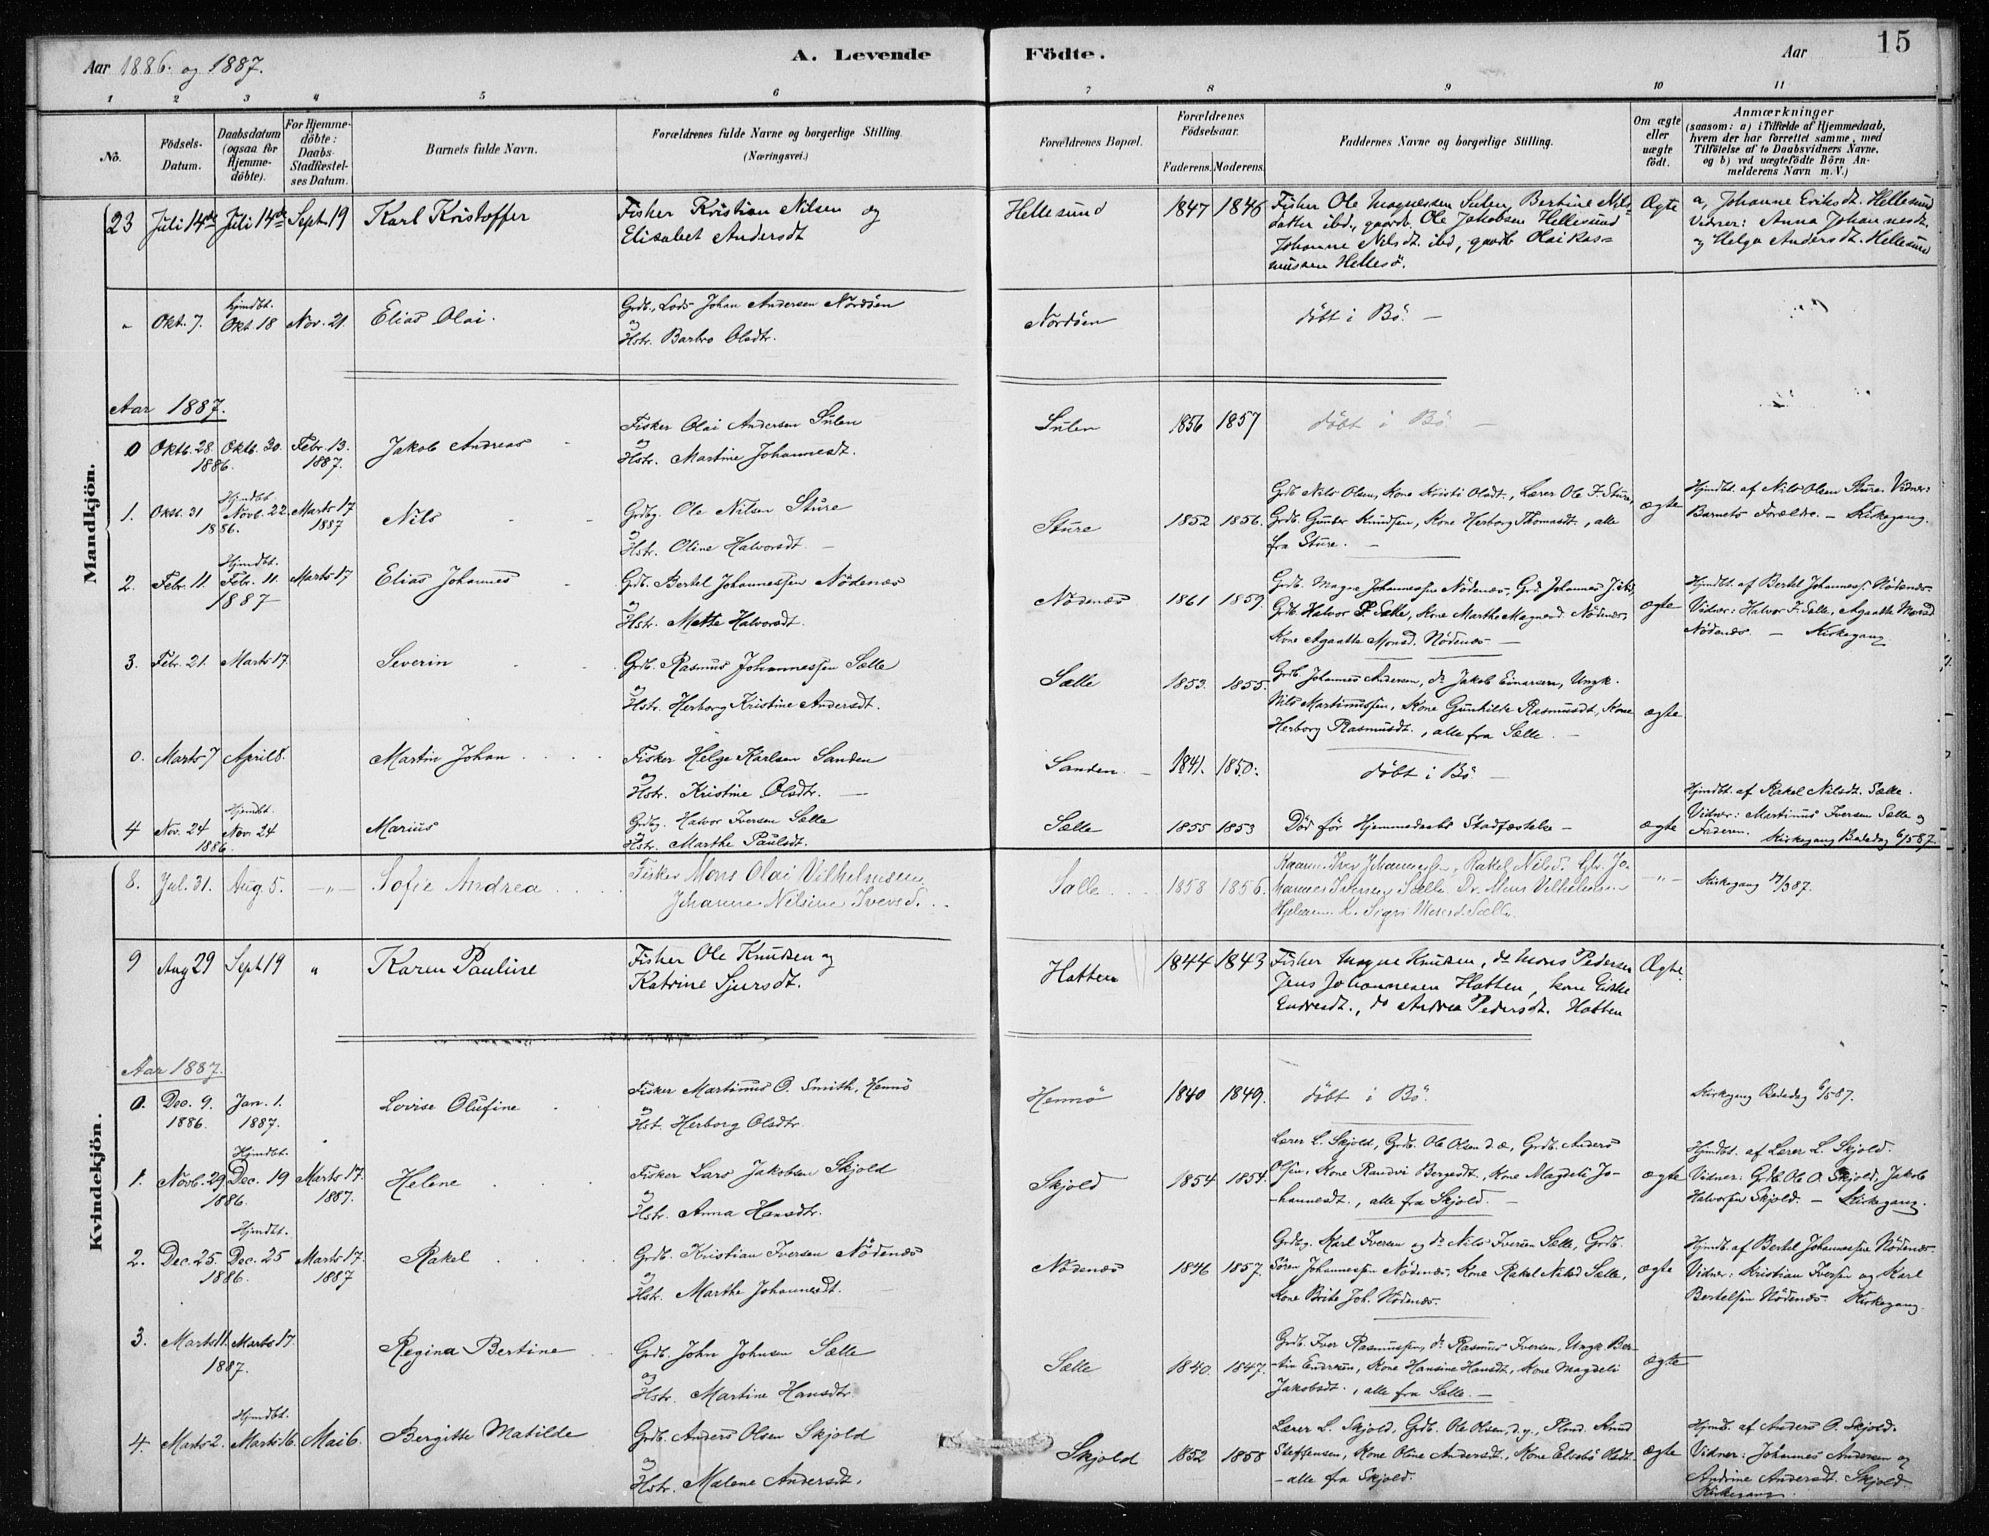 Aar 1886 og 1887.
A. Levende
Födte.
Aar
15
1 2 3 4 5 6 7 8 9 10 11
No.
Födsels-
Datum.
Daabsdatum
(ogsaa for
Hjemme-
döbte).
For Hjemme-
döbte:
Daabs-
Stadfæstel-
ses Datum.
Barnets fulde Navn.
Forældrenes fulde Navne og borgerlige Stilling.
(Næringsvei.)
Forældrenes Bopæl.
Forældrenes
Födselsaar.
Faderens. Moderens.
Faddernes Navne og borgerlige Stilling.
Om ægte
eller
uægte
födt.
Anmærkninger
(saasom: a) i Tilfælde af Hjemmedaab,
hvem der har forrettet samme, med
Tilföielse af to Daabsvidners Navne,
og b) ved uægtefödte Börn An-
melderens Navn m. V.)
Mandkjön.
23 Juli 14de Juli 14de Sept 19 Karl Kristoffer
Fisker Kristian Nilsen og
Elisabet Andersdt
Hellesund 1847 1846
Fisker Ole Magnussen Sulen, Bertine Nils-
datter ibd., gaardb. Ole Jakobsen Hellesund
Johanne Nilsdt. ibd, gaardb Olai Ras-
mussen Hellesö.
Ægte
a, Johanne Eriksdt. Hellesund
Vidner: Anna Johannesdt.
og Helga Andersdt. Hellesund
" Okt. 7. hjmdbt. Okt 18 Nov. 21. Elias Olai.
Grdb., Lods Johan Andersen Nordöen
og
Hstr. Barbro Olsdtr.
Nordöen
döbt i Bö. —
Aar 1887.
0 Oktb. 28. 1886. Oktb. 30. Febr. 13. 1887. Jakob Andreas
Fisker Olai Andersen Sulen
og
Hstr. Martine Johannesdt.
Sulen 1856 1857
döbt i Bö —
1. Oktb. 31 1886. Hjmdbt Novb. 22. Marts 17 1887 Nils
Grdbg. Ole Nilsen Sture
og
Hstr. Oline Halvorsdt. —
Sture 1852 1856.
Grdb Nils Olsen, Kone Kristi Olsdt., Lærer Ole J. Sture,
Grdb. Gunder Knudsen, Kone Herborg Thomasdt., alle
fra Sture. —
ægte
Hjmdbt. af Nils Olsen Sture. Vidner:
Barnets Forældre. — Kirkegang.
2. Febr. 11. Hjmdbt. Febr. 11. 1887 Marts 17 Elias Johannes
Grdb. Bertel Johannessen Nödenæs
og
Hstr. Mette Halvorsdt.
Nödenæs 1861 1859.
Grdb. Magne Johannessen Nödenæs, Grd. Johannes J. ibd,
Grdb. Halvor J. Sælle, Kone Marthe Magnesd. Nödenæs,
Kone Agaathe Monsd. Nödenæs —
ægte
Hjmdbt. af Bertel Johannessen Nödenæs
Vidner: Halvor J. Sælle, Agaathe Monsd
Nödenæs. — Kirkegang
3. Febr. 21. Marts 17. Severin
Grdb. Rasmus Johannessen Sælle
og
Hstr. Herborg Kristine Andersdt.
Sælle 1853. 1855.
Grdb. Johannes Andersen, do Jakob Einarsen, Ungk.
Nils Martinussen, Kone Gunhilde Rasmusdt, Kone
Herborg Rasmusdt., alle fra Sælle. —
ægte
0. Marts 7 April 8. Martin Johan
Fisker Helge Karlsen Sanden
og
Hstr. Kristine Olsdtr. —
Sanden. 1841. 1850.
döbt i Bö —
4 Nov. 24 1886 Hjmdbt. Nov. 24 Marius
Grdbg. Halvor Iversen Sælle
og
Hstr. Marthe Paulsdt.
Sælle 1855 1853
Död för Hjemmedaabs Stadfæstelse —
ægte
Hjmdbt. af Rakel Nilsdt. Sælle.
Vidner: Martinus Iversen Sælle og
Faderen. Kirkegang Bededag 6/5 87.
Kvindekjön.
8. Jul. 31. Aug. 5. —"— Sofie Andrea
Fisker Mons Olai Vilhelmsen
Johanne Nilsine Iversd.
Sælle 1858 1856.
Iver Johannesen, Rakel Nilsd. Jo-
hannes Iversen Sælle Mons Vilhelmsen
K. Sigri Monsd. Sælle.
—"—
Kirkegang 17/3 87.
9 Aug 29 Sept 19 " Karen Pauline
Fisker Ole Knudsen og
Katrine Sjursdt.
Hatten 1844 1843
Fisker Magne Knudsen, do Mons Pedersen
Jens Johannesen Hatten, kone Eirke
Endresdt., do Andrea Pedersdt. Hatten
Ægte.
Aar 1887.
0. Dec. 9. 1886. Jan. 1. 1887. Lovise Olufine
Fisker Martinus O. Smith, Hennö
og
Hst. Herborg Olsdtr.
Hennö 1840 1849.
döbt i Bö.
Kirkegang Bededag 6/5 87.
1. Novb. 29 1886. Hjmdbt. Dec. 19 Marts 17. 1887. Helene
Fisker Lars Jakobsen Skjold
og
Hstr. Anna Hansdtr.
Skjold 1854 1854.
Lærer L. Skjold, Grdb. Ole Olsen d.æ., Grdb. Anders
Olsen, Kone Randvi Bergesdt, Kone Magdeli Jo-
-hannesdt., alle fra Skjold. —
ægte
Hjmdbt. af Lærer L. Skjold.
Vidner: Grdb. Ole O. Skjold, Jakob
Halvorsen Skjold. — Kirkegang.
2. Dec. 25. 1886. Hjmdbt. Dec. 25 Marts 17. 1887 Rakel
Grdb. Kristian Iversen Nödenæs
og
Hstr. Marthe Johannesdt.
Nödenæs 1846 1857.
Grdbg. Karl Iversen og do Nils Iversen Sælle, Grdb.
Sören Johannessen Nödenæs, Kone Rakel Nilsd Sælle,
Kone Brite Joh. Nödenæs.
ægte
Hjmdb. af Bertel Johannessen Nödenæs.
Vidner: Kristian Iversen og Karl
Bertelsen Nödenæs. Kirkegang.
3. Marts 11. 1887. Marts 17. Regina Bertine
Grdb. John Johnsen Sælle
og
Hstr. Martine Hansdtr.
Sælle 1840. 1847.
Grdb. Iver Rasmussen, do Rasmus Iversen, Ungk. Ber-
-tin Endresen, Kone Hansine Hansdt, Kone Magdeli
Jakobsdt., alle fra Sælle. —
ægte
4. Marts 2. Hjmdbt. Marts 16. Mai 6. Bergitte Matilde
Grdb. Anders Olsen Skjold
og
Hstr. Malene Andersdt.
Skjold 1852 1858
Lærer L. Skjold, Grdb. Ole Olsen, d.y., Knud
Steffensen, Kone Oline Andersdt., Kone Elsebö Olsdt.
-alle fra Skjold.
ægte
Hjmdb. af Anders O. Skjold.
Vidner: Johannes Andersen og
Andrine Andersdt. Skjold.
Kirkegang.